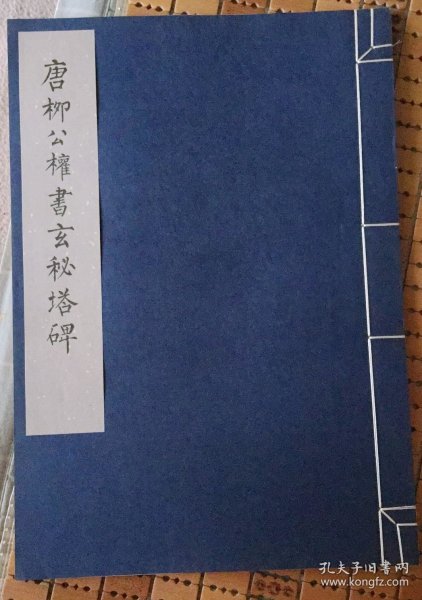 唐柳公權書玄秘塔碑
孔夫子旧书网
www.kongfz.com